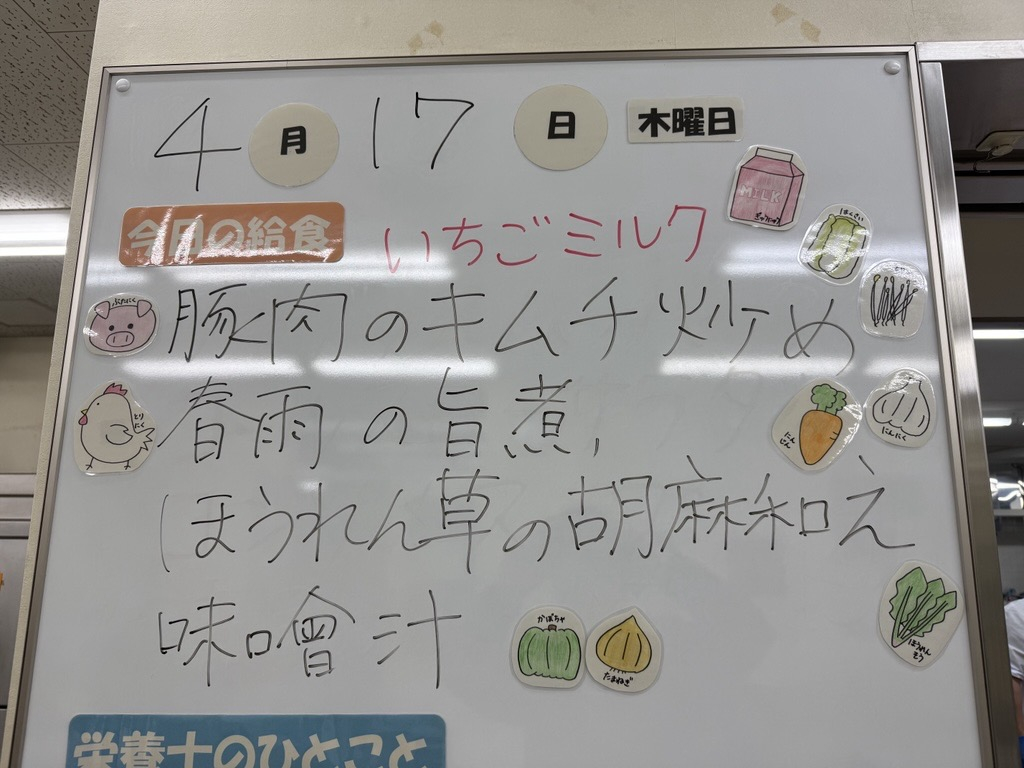 4月17日 木曜日
今日の給食 いちごミルク
MILK
ぎゅうにゅう
はくさい
ぶたにく
豚肉のキムチ炒め
とりにく
春雨の旨煮
にんじん
にんにく
ほうれん草の胡麻和え
味噌汁
かぼちゃ
たまねぎ
ほうれんそう
栄養士のひとこと